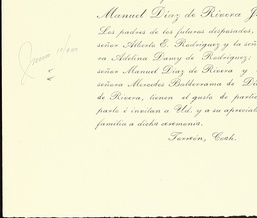 Manuel Diaz de Rivera J
Los padres de los futuros desposados,
señor Alberto E. Rodriguez y la señ
ra Adelina Damy de Rodriguez;
señor Manuel Diaz de Rivera y
señora Mercedes Balderrama de Di
de Rivera, tienen el gusto de partic
parlo é invitan a Ud. y a su apreciab
familia a dicha ceremonia.
Torreón, Coah.